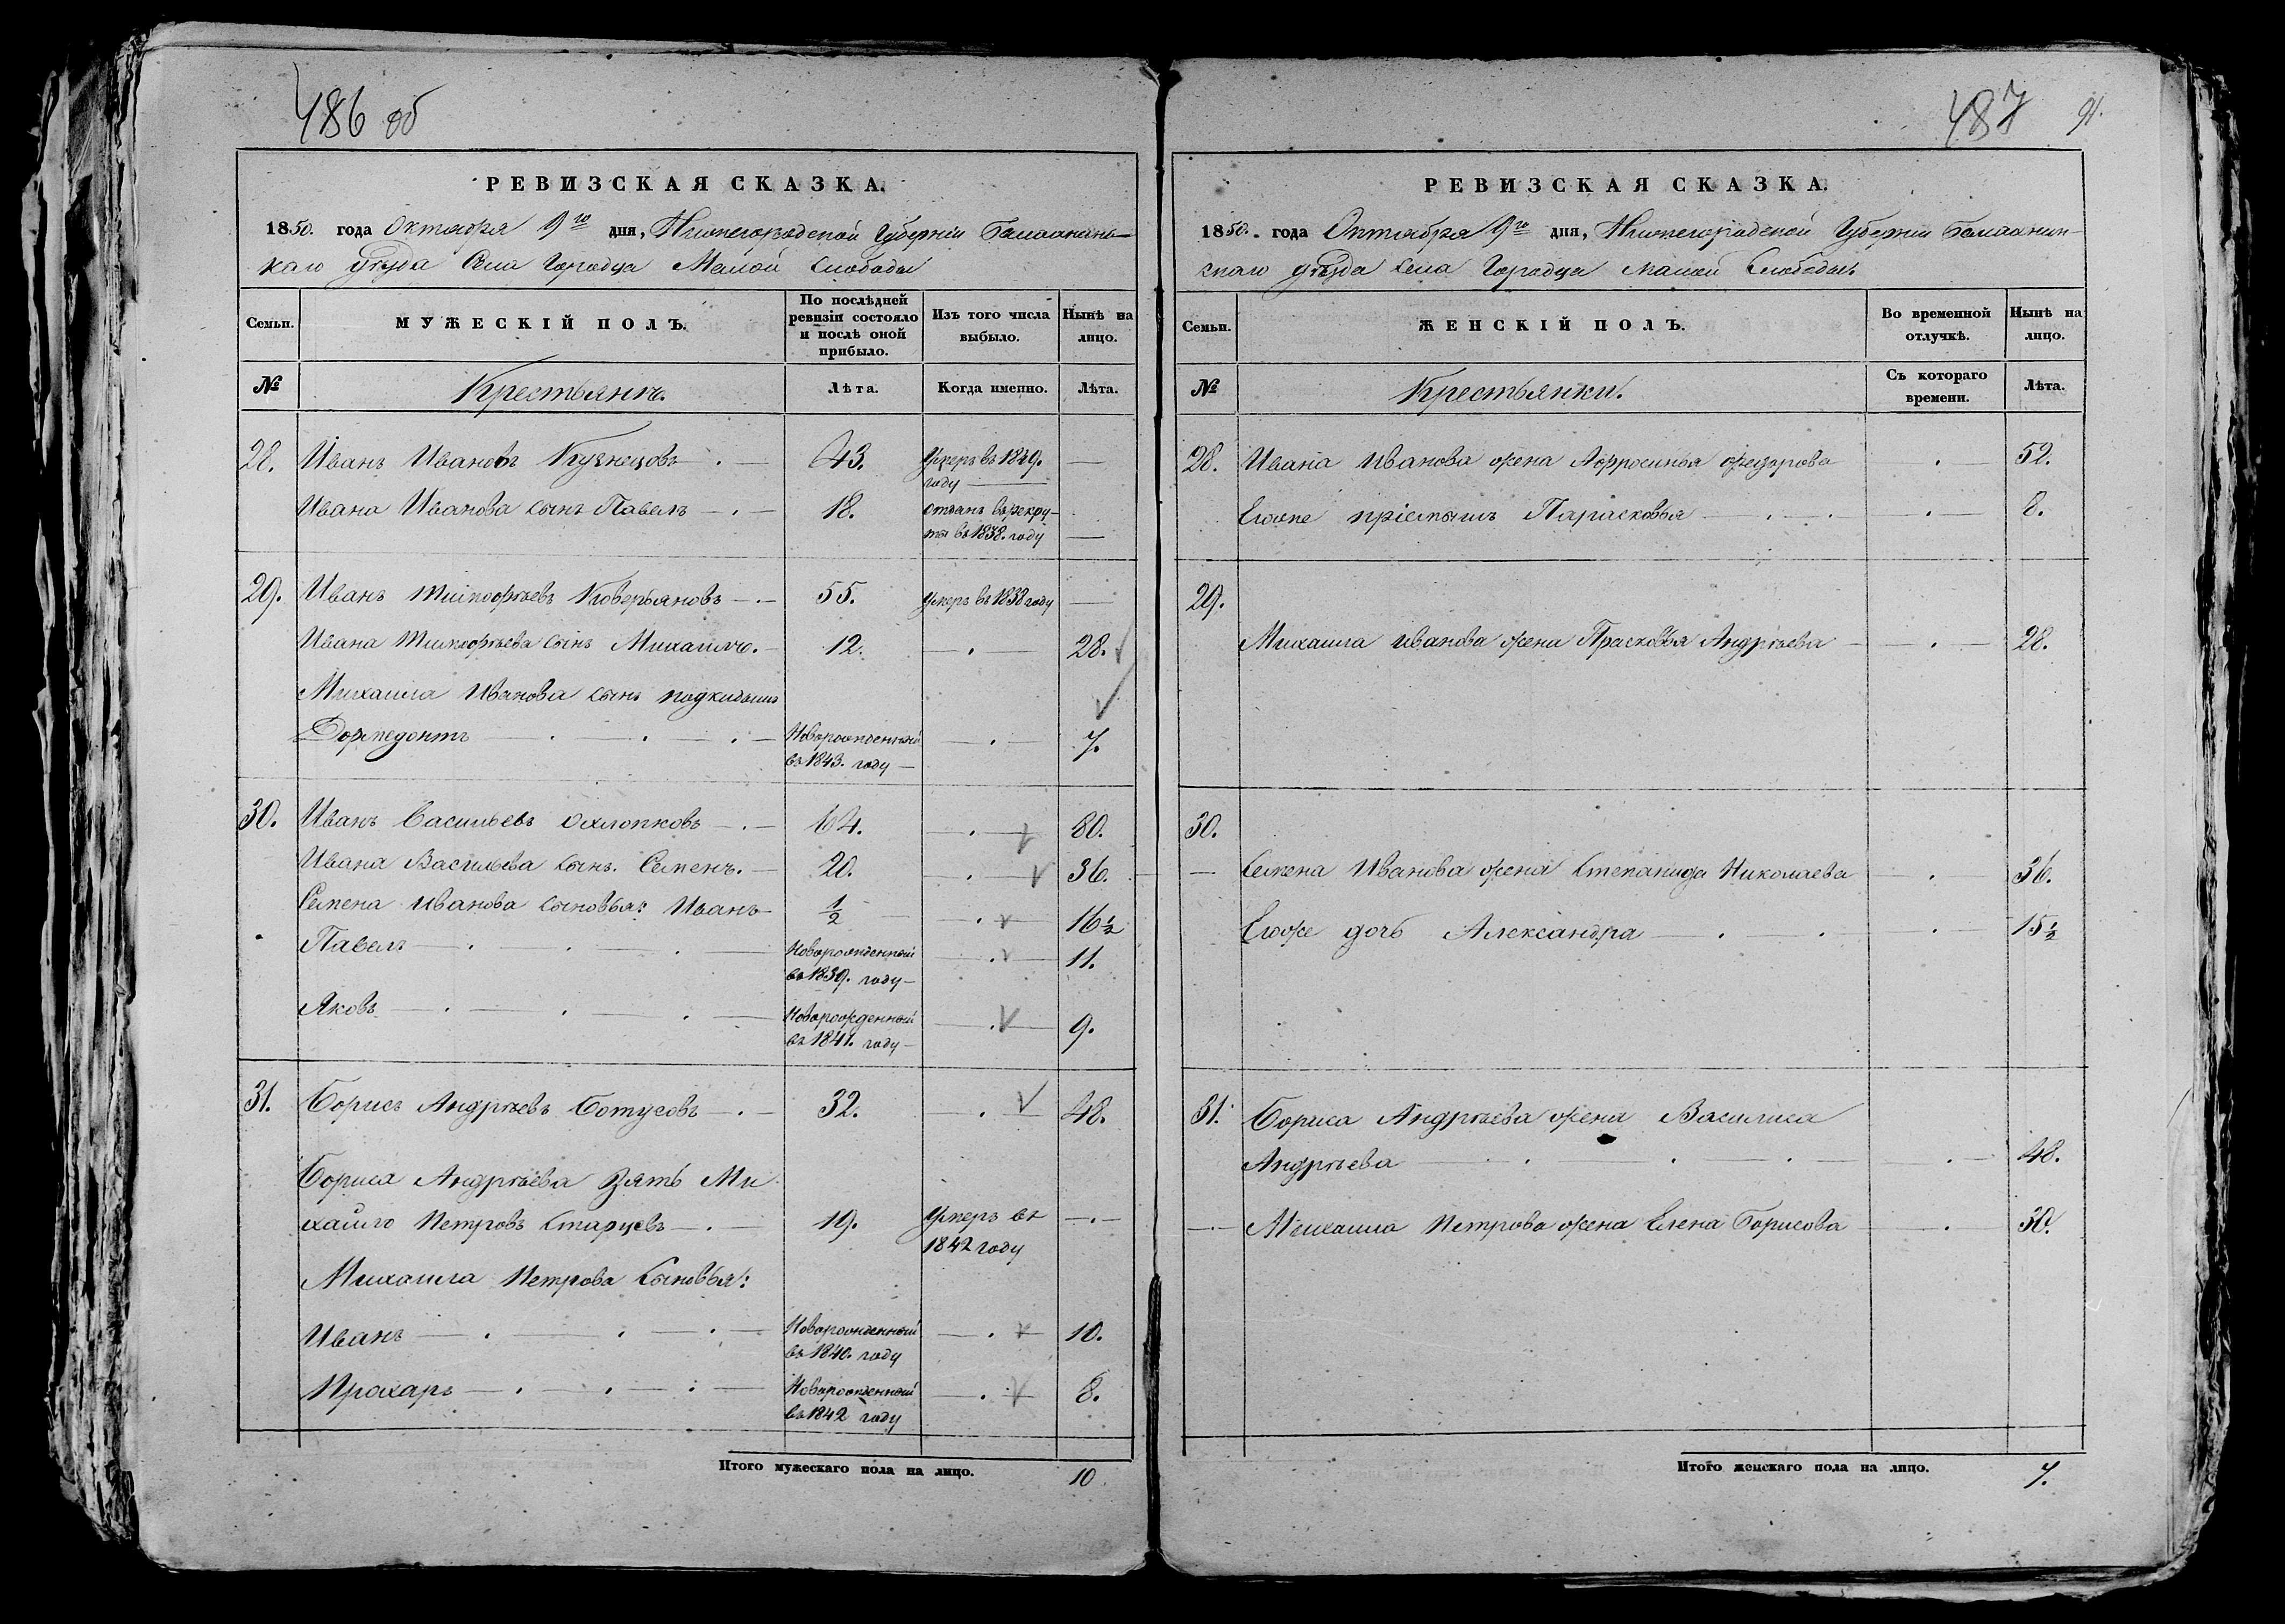 486 об
РЕВИЗСКАЯ СКАЗКА.
1850. года Октября 9го дня, Нижегородской Губернии Балахнинс-
каго уѣзда Села Городца Малой Слободы
Семьи.
МУЖЕСКІЙ ПОЛЪ.
По послѣдней
ревизіи состояло
и послѣ оной
прибыло.
Изъ того числа
выбыло.
Нынѣ на
лицо.
№
Крестьянъ.
Лѣта.
Когда именно.
Лѣта.
28. Иванъ Ивановъ Кузнецовъ 43. Умеръ въ 1839.
году
Ивана Иванова сынъ Павелъ 18. отданъ въ рекру-
ты въ 1838. году
29. Иванъ Тимофѣевъ Коверьяновъ 55. умеръ въ 1838 году
Ивана Тимофѣева сынъ Михаилъ. 12. 28.
Михаила Иванова сынъ подкидышъ
Дормедонтъ Новорожденный 7.
въ 1843. году
30. Иванъ Васильевъ Охлопковъ 64. 80.
Ивана Васильева сынъ. Семенъ. 20. 36.
Семена Иванова сыновья: Иванъ 1/2 16 1/2
Павелъ Новорожденный 11.
въ 1839. году
Яковъ Новорожденный 9.
въ 1841. году
31. Борисъ Андрѣевъ Ботусовъ 32. 48.
Бориса Андрѣева Зять Ми
хайло Петровъ Старцевъ 19. Умеръ въ
1842 году
Михаила Петрова Сыновья:
Иванъ Новорожденный 10.
въ 1840. году
Прохаръ Новорожденный 8.
въ 1842 году
Итого мужескаго пола на лицо. 10
487 91.
РЕВИЗСКАЯ СКАЗКА.
1850. года Октября 9го дня, Нижегородской Губернии Балахнин-
скаго уѣзда села Городца малой Слободы.
Семьи.
ЖЕНСКІЙ ПОЛЪ.
Во временной
отлучкѣ.
Нынѣ на
лицо.
№
Крестьянки.
Съ котораго
времени.
Лѣта.
28. Ивана Иванова жена Афросинья федорова 52.
Егоже пріемышъ Парасковья 8.
29.
Михаила иванова жена Прасковья Андрѣева 28.
30.
Семена Иванова жена Степанида Николаева 36.
Егоже дочь Александра 15 1/2
31. Бориса Андрѣева жена Василиса
Андрѣева 48.
Михаила Петрова жена Елена Борисова 30.
Итого женскаго пола на лицо. 7.